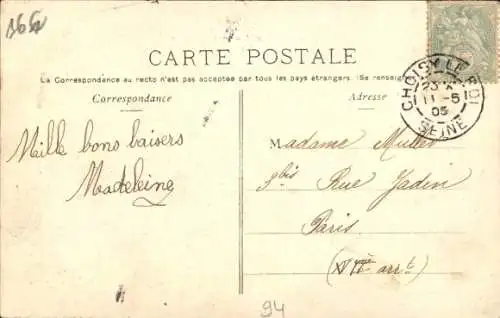 CARTE POSTALE
La Correspondance au recto n'est pas acceptée par tous les pays étrangers. (Se renseign
Correspondance
Adresse
CHOISY LE ROI
11 -5
05
SEINE
Mille bons baisers
Madeleine
Madame Muller
bis Rue Jadin
Paris
arrt
94